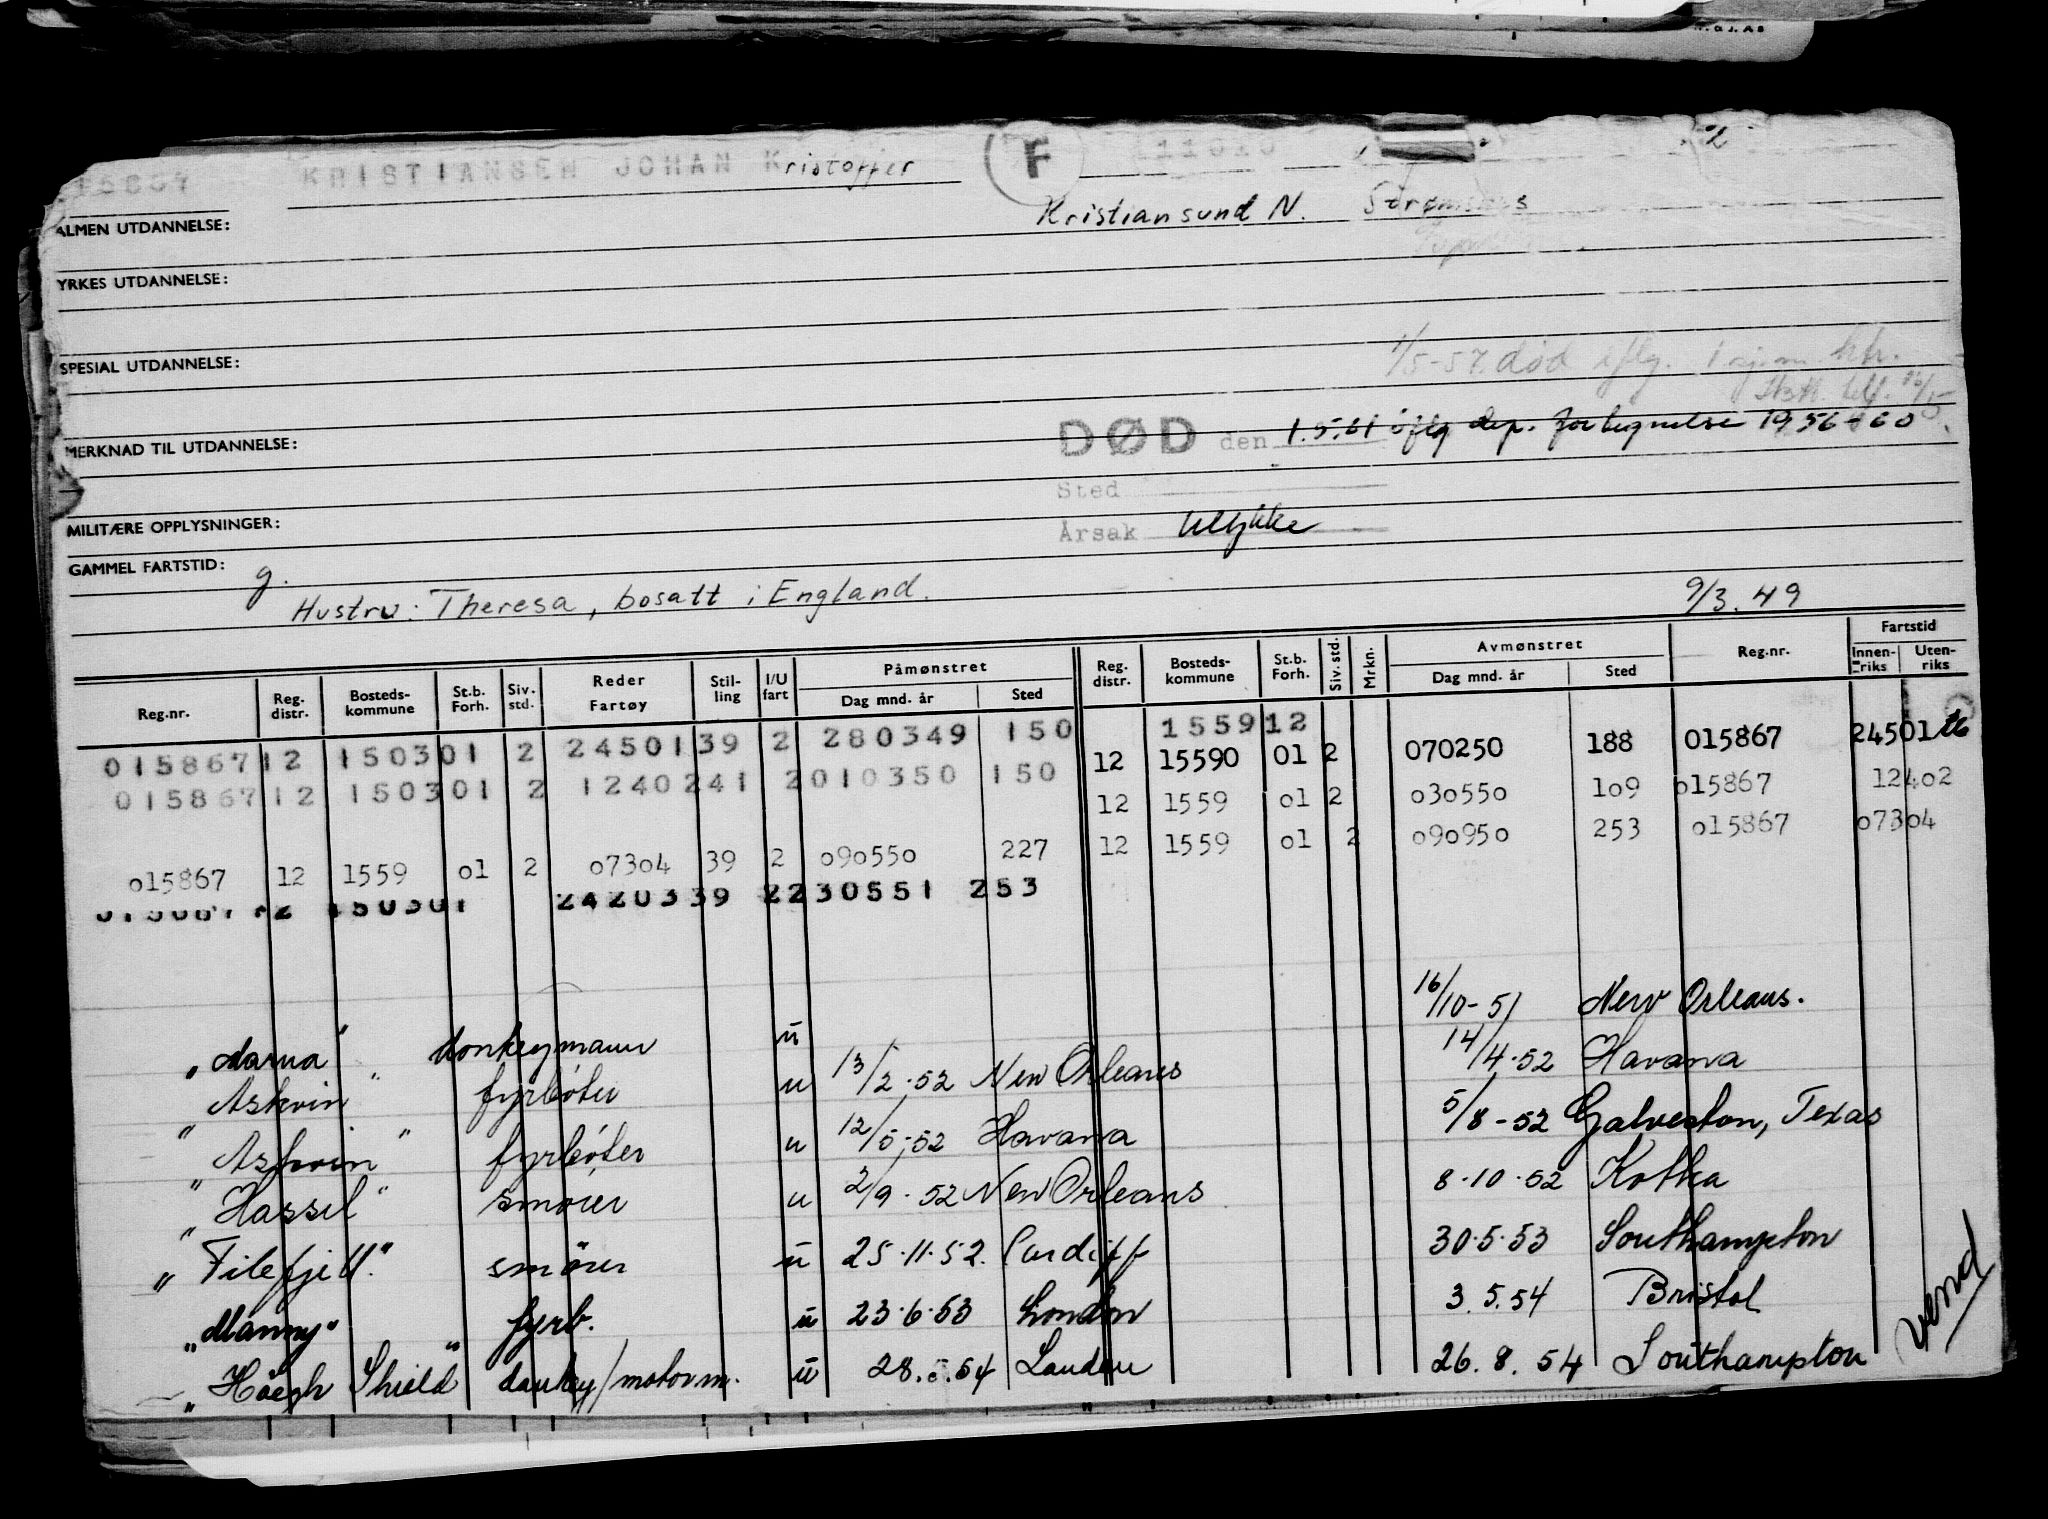 15867 KRISTIANSEN JOHAN Kristoffer F 11020 2
ALMEN UTDANNELSE: Kristiansund N.
YRKES UTDANNELSE:
1/5-57. død iflg.
SPESIAL UTDANNELSE:
DØD den 1.5.61 iflg dep. for 1956-60
MERKNAD TIL UTDANNELSE:
Sted
MILITÆRE OPPLYSNINGER: Årsak Ulykke
GAMMEL FARTSTID: g.
Hustru: Theresa, bosatt i England. 9/3.49
Reg.nr. Reg. distr. Bosteds-kommune St.b. Forh. Siv. std. Reder Fartøy Stil-ling I/U fart Påmønstret Dag mnd. år Sted Reg. distr. Bosteds-kommune St.b. Forh. Siv. std. Mrkn. Avmønstret Dag mnd. år Sted Reg.nr. Fartstid Innen-riks Uten-riks
155912
015867 12 1503 01 2 24501 39 2 280349 150 12 15590 01 2 070250 188 015867 24501
015867 12 1503 01 2 12402 41 2 010350 150 12 1559 01 2 030550 109 015867 12402
015867 12 1559 01 2 07304 39 2 090550 227 12 1559 01 2 090950 253 015867 07304
015867 12 1503 01 24203 39 2 230551 253
donkeymann u 16/10-51 New Orleans.
"Askvin" fyrbøter u 13/2.52 New Orleans 14/4.52 Havana
"Askvin" fyrbøter u 12/5-52 Havana 5/8-52 Galveston, Texas
"Hassel" smører u 2/9.52 New Orleans 8.10.52 Kotka
"Filefjell" smører u 25.11.52. Cardiff 30.5.53 Southampton
"Manny" fyrb. u 23.6.53 London 3.5.54 Bristol
"Höegh Shield" donkey/motorm. u 28.5.54 London 26.8.54 Southampton
vend